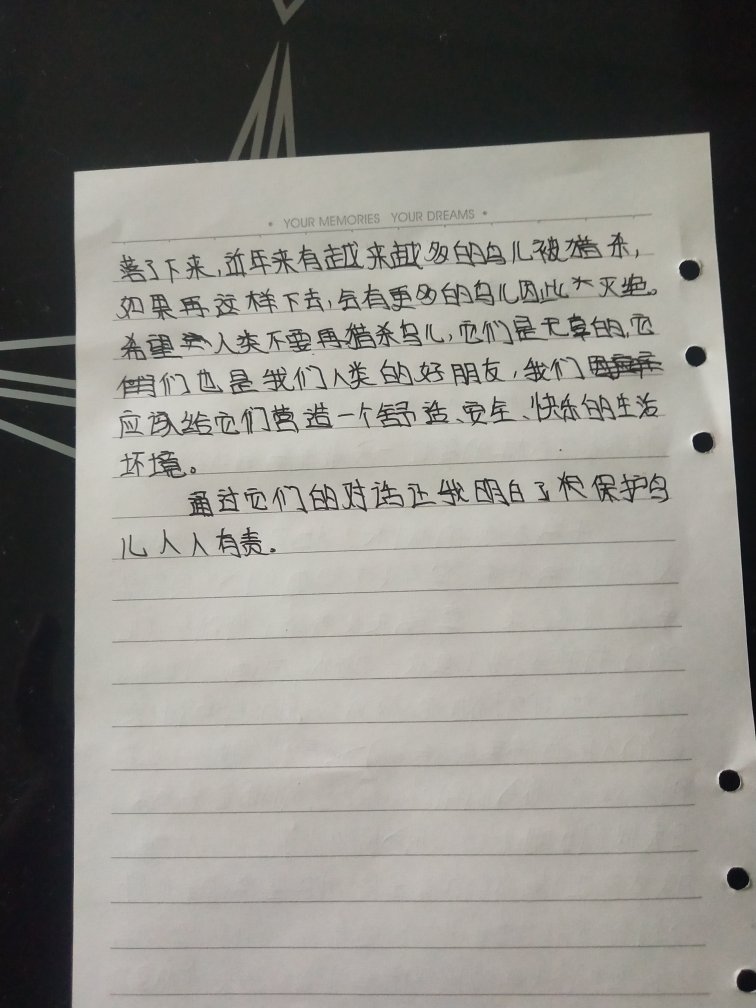 • YOUR MEMORIES YOUR DREAMS •
落了下来，近年来有越来越多的鸟儿被猎杀，
如果再这样下去，会有更多的鸟儿因此灭绝。
希望人类不要再猎杀鸟儿，它们是无辜的，它
们也是我们人类的好朋友，我们
应该给它们营造一个舒适、安全、快乐的生活
环境。
通过它们的对话让我明白了保护鸟
儿人人有责。